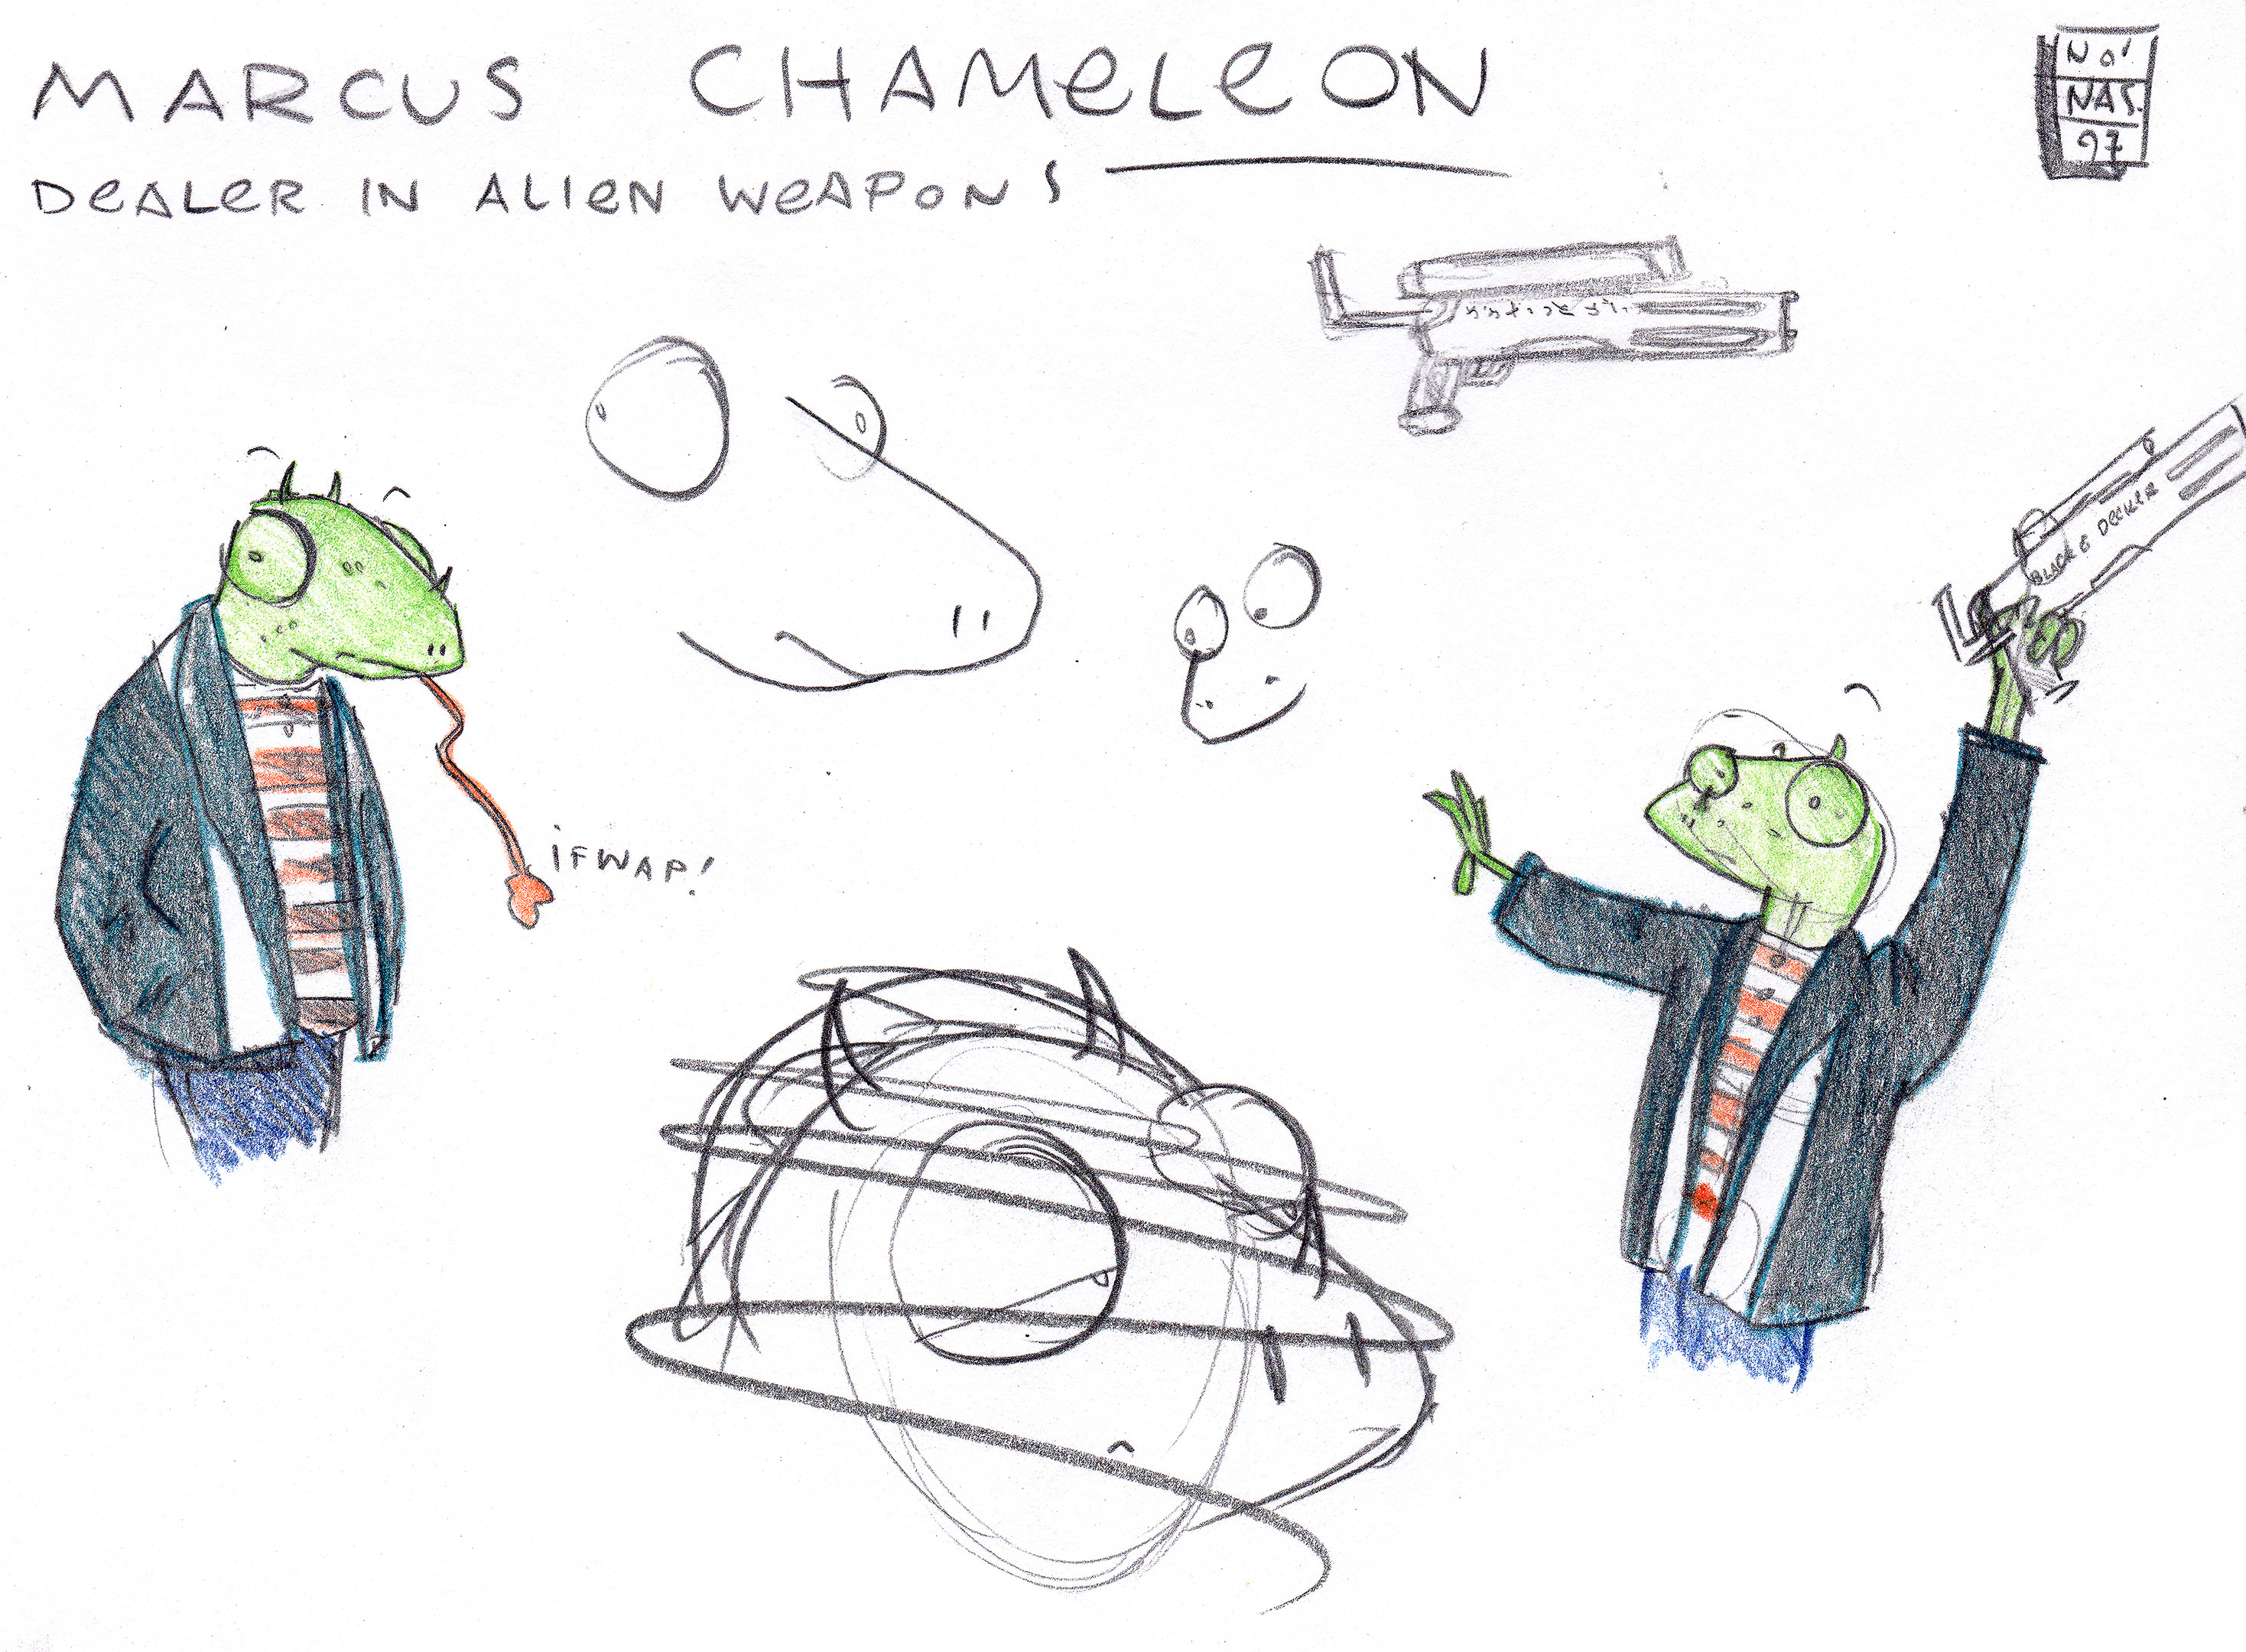 MARCUS CHAMELEON
DEALER IN ALIEN WEAPONS
NO'
NAS.
97
BLACK & DECKER
iFWAP!